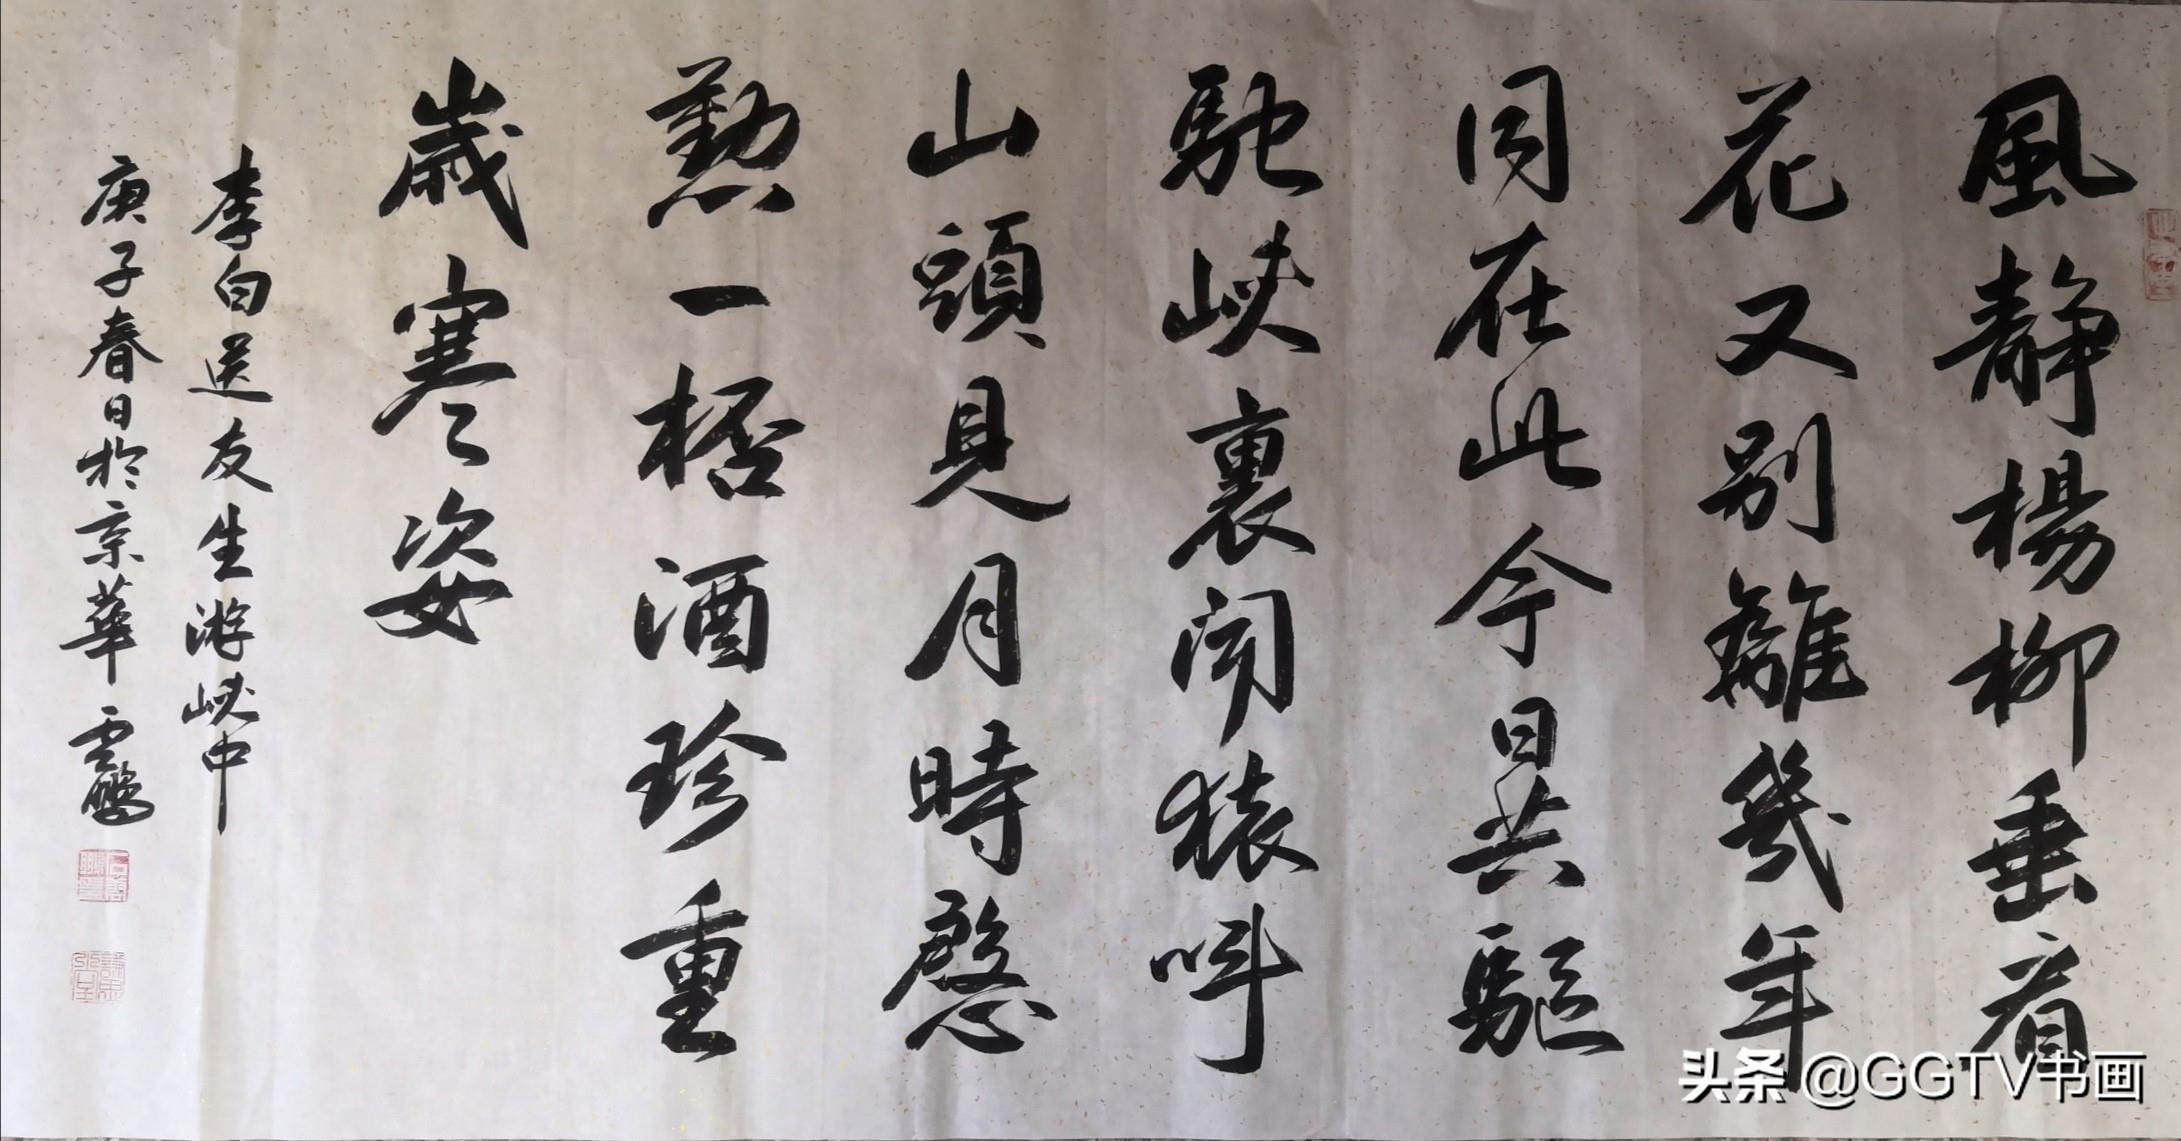 風靜楊柳垂看
花又别離幾年
同在此今日共驅
馳峽裏聞猿叫
山頭見月時慇
懃一桮酒珍重
歲寒姿
李白送友生游峽中
庚子春日於京華雲鵬
头条 @GGTV书画